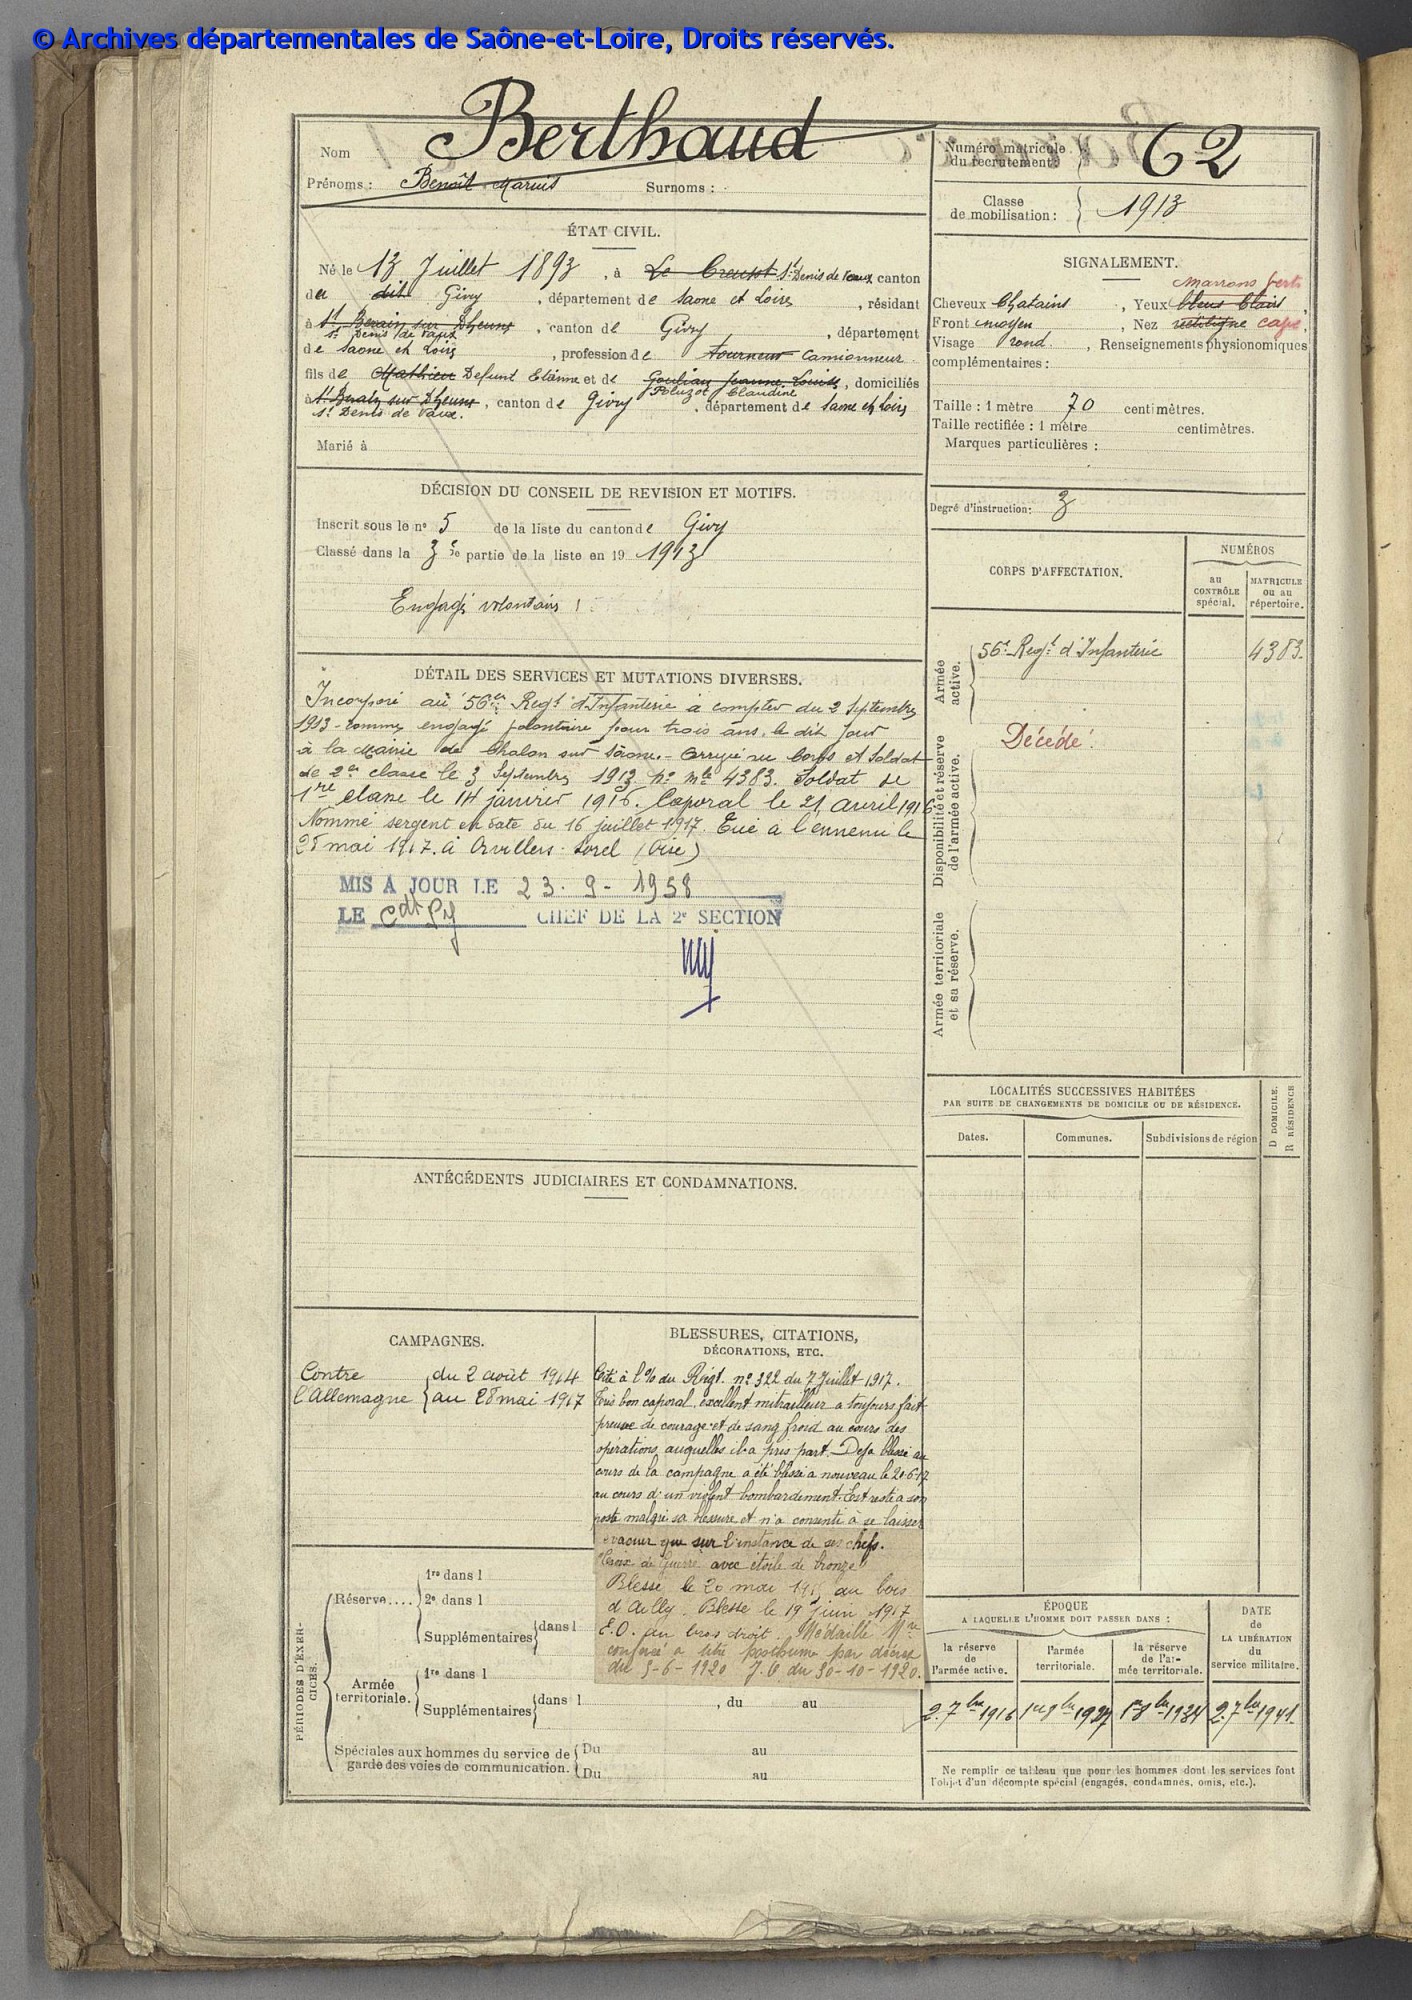 © Archives départementales de Saône-et-Loire, Droits réservés.
Nom Berthaud
Prénoms : Benoît Marius Surnoms :
Numéro matricule du recrutement : 62
Classe de mobilisation : 1913
ÉTAT CIVIL.
Né le 13 Juillet 1893, à Le Creusot St Denis de Vaux canton
de dit Givy, département de Saone et Loire, résidant
à St Berain sur Dheune St Denis de Vaux, canton de Givry, département
de Saone et Loire, profession de tourneur camionneur
fils de Mathieu Defunt Etienne et de Goulian Jeanne Louise Poluzot Claudine, domiciliés
à St Berain sur Dheune St Denis de Vaux, canton de Givry, département de Saone et Loire
Marié à
SIGNALEMENT.
marrons vert
Cheveux Chatains, Yeux bleus clairs,
Front moyen, Nez rectiligne cave,
Visage rond, Renseignements physionomiques
complémentaires :
Taille : 1 mètre 70 centimètres.
Taille rectifiée : 1 mètre centimètres.
Marques particulières :
Degré d'instruction : 3
DÉCISION DU CONSEIL DE REVISION ET MOTIFS.
Inscrit sous le n° 5 de la liste du canton de Givry
Classé dans la 3e partie de la liste en 19 1913
Engagé volontaire
CORPS D'AFFECTATION.
NUMÉROS
au CONTRÔLE spécial.
MATRICULE ou au répertoire.
Armée active.
56e Regt d'Infanterie 4383.
Décédé.
Disponibilité et réserve de l'armée active.
Armée territoriale et sa réserve.
DÉTAIL DES SERVICES ET MUTATIONS DIVERSES.
Incorporé au 56e Regt d'Infanterie à compter du 2 Septembre
1913 - comme engagé volontaire pour trois ans, le dit jour
à la Mairie de Chalon sur Saone. - Arrivé au Corps et Soldat
de 2e classe le 3 Septembre 1913 No mle 4383. Soldat de
1re classe le 14 janvier 1916. Caporal le 21 avril 1916
Nommé sergent en date du 16 juillet 1917. Tué à l'ennemi le
28 mai 1917. à Orvillers-Sorel (Oise)
MIS A JOUR LE 23-9-1958
LE CHEF DE LA 2e SECTION
LOCALITÉS SUCCESSIVES HABITÉES
PAR SUITE DE CHANGEMENTS DE DOMICILE OU DE RÉSIDENCE.
Dates. Communes. Subdivisions de région
D DOMICILE.
R RÉSIDENCE
ANTÉCÉDENTS JUDICIAIRES ET CONDAMNATIONS.
CAMPAGNES.
Contre l'Allemagne { du 2 août 1914
au 28 mai 1917
BLESSURES, CITATIONS,
DÉCORATIONS, ETC.
Cité à l'% du Regt. n° 322 du 7 Juillet 1917.
Très bon caporal, excellent mitrailleur a toujours fait
preuve de courage et de sang froid au cours des
opérations auquelles il a pris part. Deja blessé au
cours de la campagne a été blessé a nouveau le 20-6-17
au cours d'un violent bombardement. Est resté a son
poste malgré sa blessure et n'a consenti à se laisser
evacuer que sur l'instance de ses chefs.
Croix de Guerre avec étoile de bronze
Blessé le 20 mai 191 au bois
d'Ailly. Blessé le 19 juin 1917
E.O. au bras droit. Médaille Mre
conférée a titre posthume par décret
du 5-6-1920 J.O. du 30-10-1920.
PÉRIODES D'EXERCICES.
Réserve....
1re dans l
2e dans l
Supplémentaires { dans l
Armée territoriale.
1re dans l
Supplémentaires { dans l , du au
Spéciales aux hommes du service de garde des voies de communication. { Du au
Du au
ÉPOQUE
A LAQUELLE L'HOMME DOIT PASSER DANS :
la réserve de l'armée active.
l'armée territoriale.
la réserve de l'armée territoriale.
DATE de LA LIBÉRATION du service militaire.
2. 7bre 1916
1er 8bre 1927
1er 8bre 1934
2. 7bre 1941.
Ne remplir ce tableau que pour les hommes dont les services font
l'objet d'un décompte spécial (engagés, condamnés, omis, etc.).